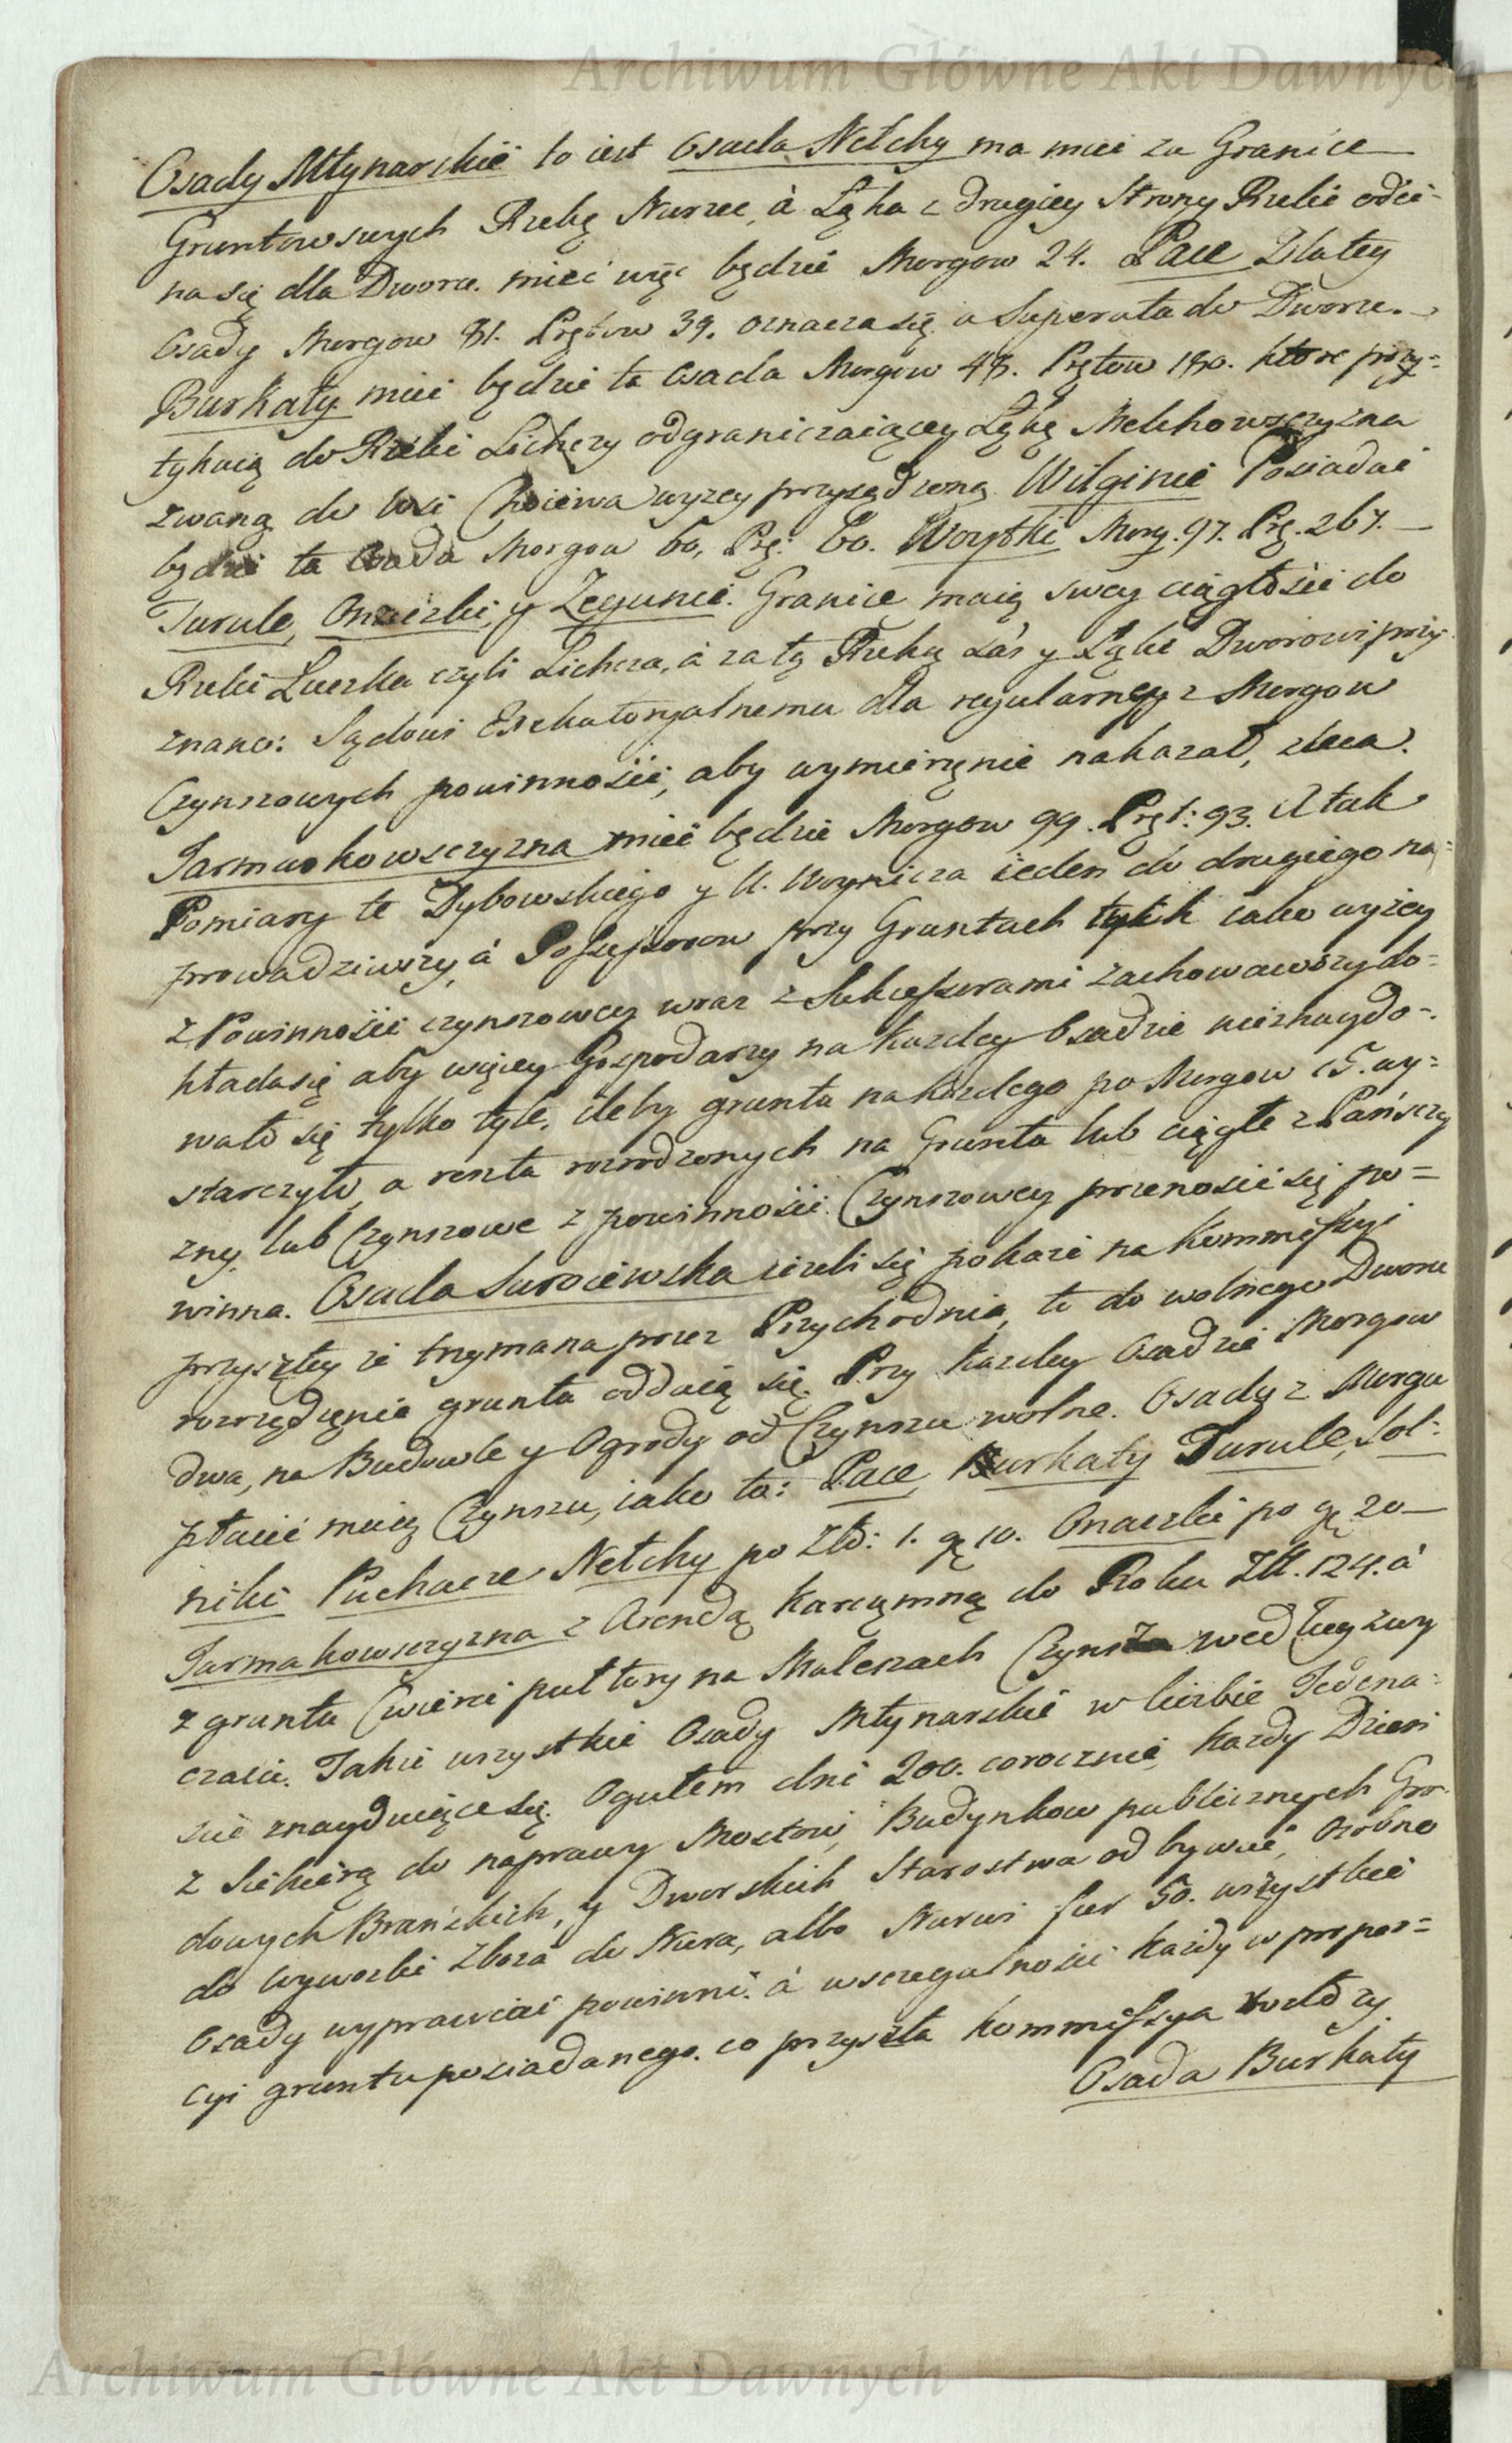 Archiwum Główne Akt Dawnych
Osady Młynarskié to iest Osada Netchy ma mieć za Granice
Gruntow swych Rzekę Nurzec, à Łąka z drugiey Strony Rzeki odci-
na się dla Dwora. mieć więc będzie Morgow 24. Pace Z latey
Osady Morgow 81. Prętow 39. oznacza się a Superata do Dworu.
Burkaty mieć będzie ta Osada Morgow 48. Prętow 180. ktore przy-
tykaią do Rzeki Lichczy odgraniczaiącey Łąkę Melchowszczyzna
zwaną do Wsi Choiewa wyżey przysądzoną. Wilginie Posiadać
będzie ta Osada Morgow 60, Prę: 60. Woytki Morg. 97. Prę. 267.
Turule, Onaczki, y Zegunie. Granice maią swey ciągłości do
Rzeki Luczka czyli Lichcza, à za tą Rzeką Las y Łąki Dworowi przy-
znano: Sądowi Exekutoryalnemu dla regularney z Morgow
Czynszowych powinności, aby wymierzenie nakazał, zleca.
Jarmakowszczyzna mieć będzie Morgow 99. Pręt: 93. A tak
Pomiary te Dybowskiego y U. Woynicza ieden do drugiego na-
prowadziwszy, à Possessorow przy Gruntach tychh iako wyżey
z Powinności czynszowey wraz z Sukcessorami zachowawszy do-
kłada się aby więcey Gospodarzy na każdey Osadzie nieznaydo-
wało się tylko tyle, ileby gruntu na każdego po Morgow 15. wy-
starczyło, a reszta rozrodzonych na Grunta lub ciągłe z Pańszczy
zny, lub Czynszowe z powinności Czynszowey przenosić się po-
winna. Osada Surociewska ieżeli się pokaże na Kommissyi
przyszłey że trzymana przez Przychodnia, to do wolnego Dworu
rozrządzenia grunta oddaią się. Przy każdey Osadzie Morgow
dwa, na Budowle y Ogrody od Czynszu wolne. Osady z Morga
płacić maią Czynszu, iako to: Pace, Burkaty Turule, Sol-
niki Puchacze Netchy po Zło: 1. gę 10. Onaczki po gę 20
Jarmakowszczyzna z Arendą Karczmną do Roku Zł. 124. à
z gruntu Cwierci puttory na Maleszach Czynsz wedłuy zwy
czaiu. Także wszystkie Osady Młynarskie w liczbie Jedena-
scie znayduiące się. Ogułem dni 200. corocznie, każdy Dzień
z Siekierą do naprawy Mostow, Budynkow publicznych Gro-
dowych Brańskich, y Dworskich Starostwa odbywać, Osobno
do Wywozki Zboża do Nura, albo Narwi fur 50. wszystkie
Osady wyprawiać powinni. à wszczegulności każdy w propor-
cyi gruntu posiadanego. co przyszła Kommissya roztrzy.
Osada Burkaty
Archiwum Główne Akt Dawnych